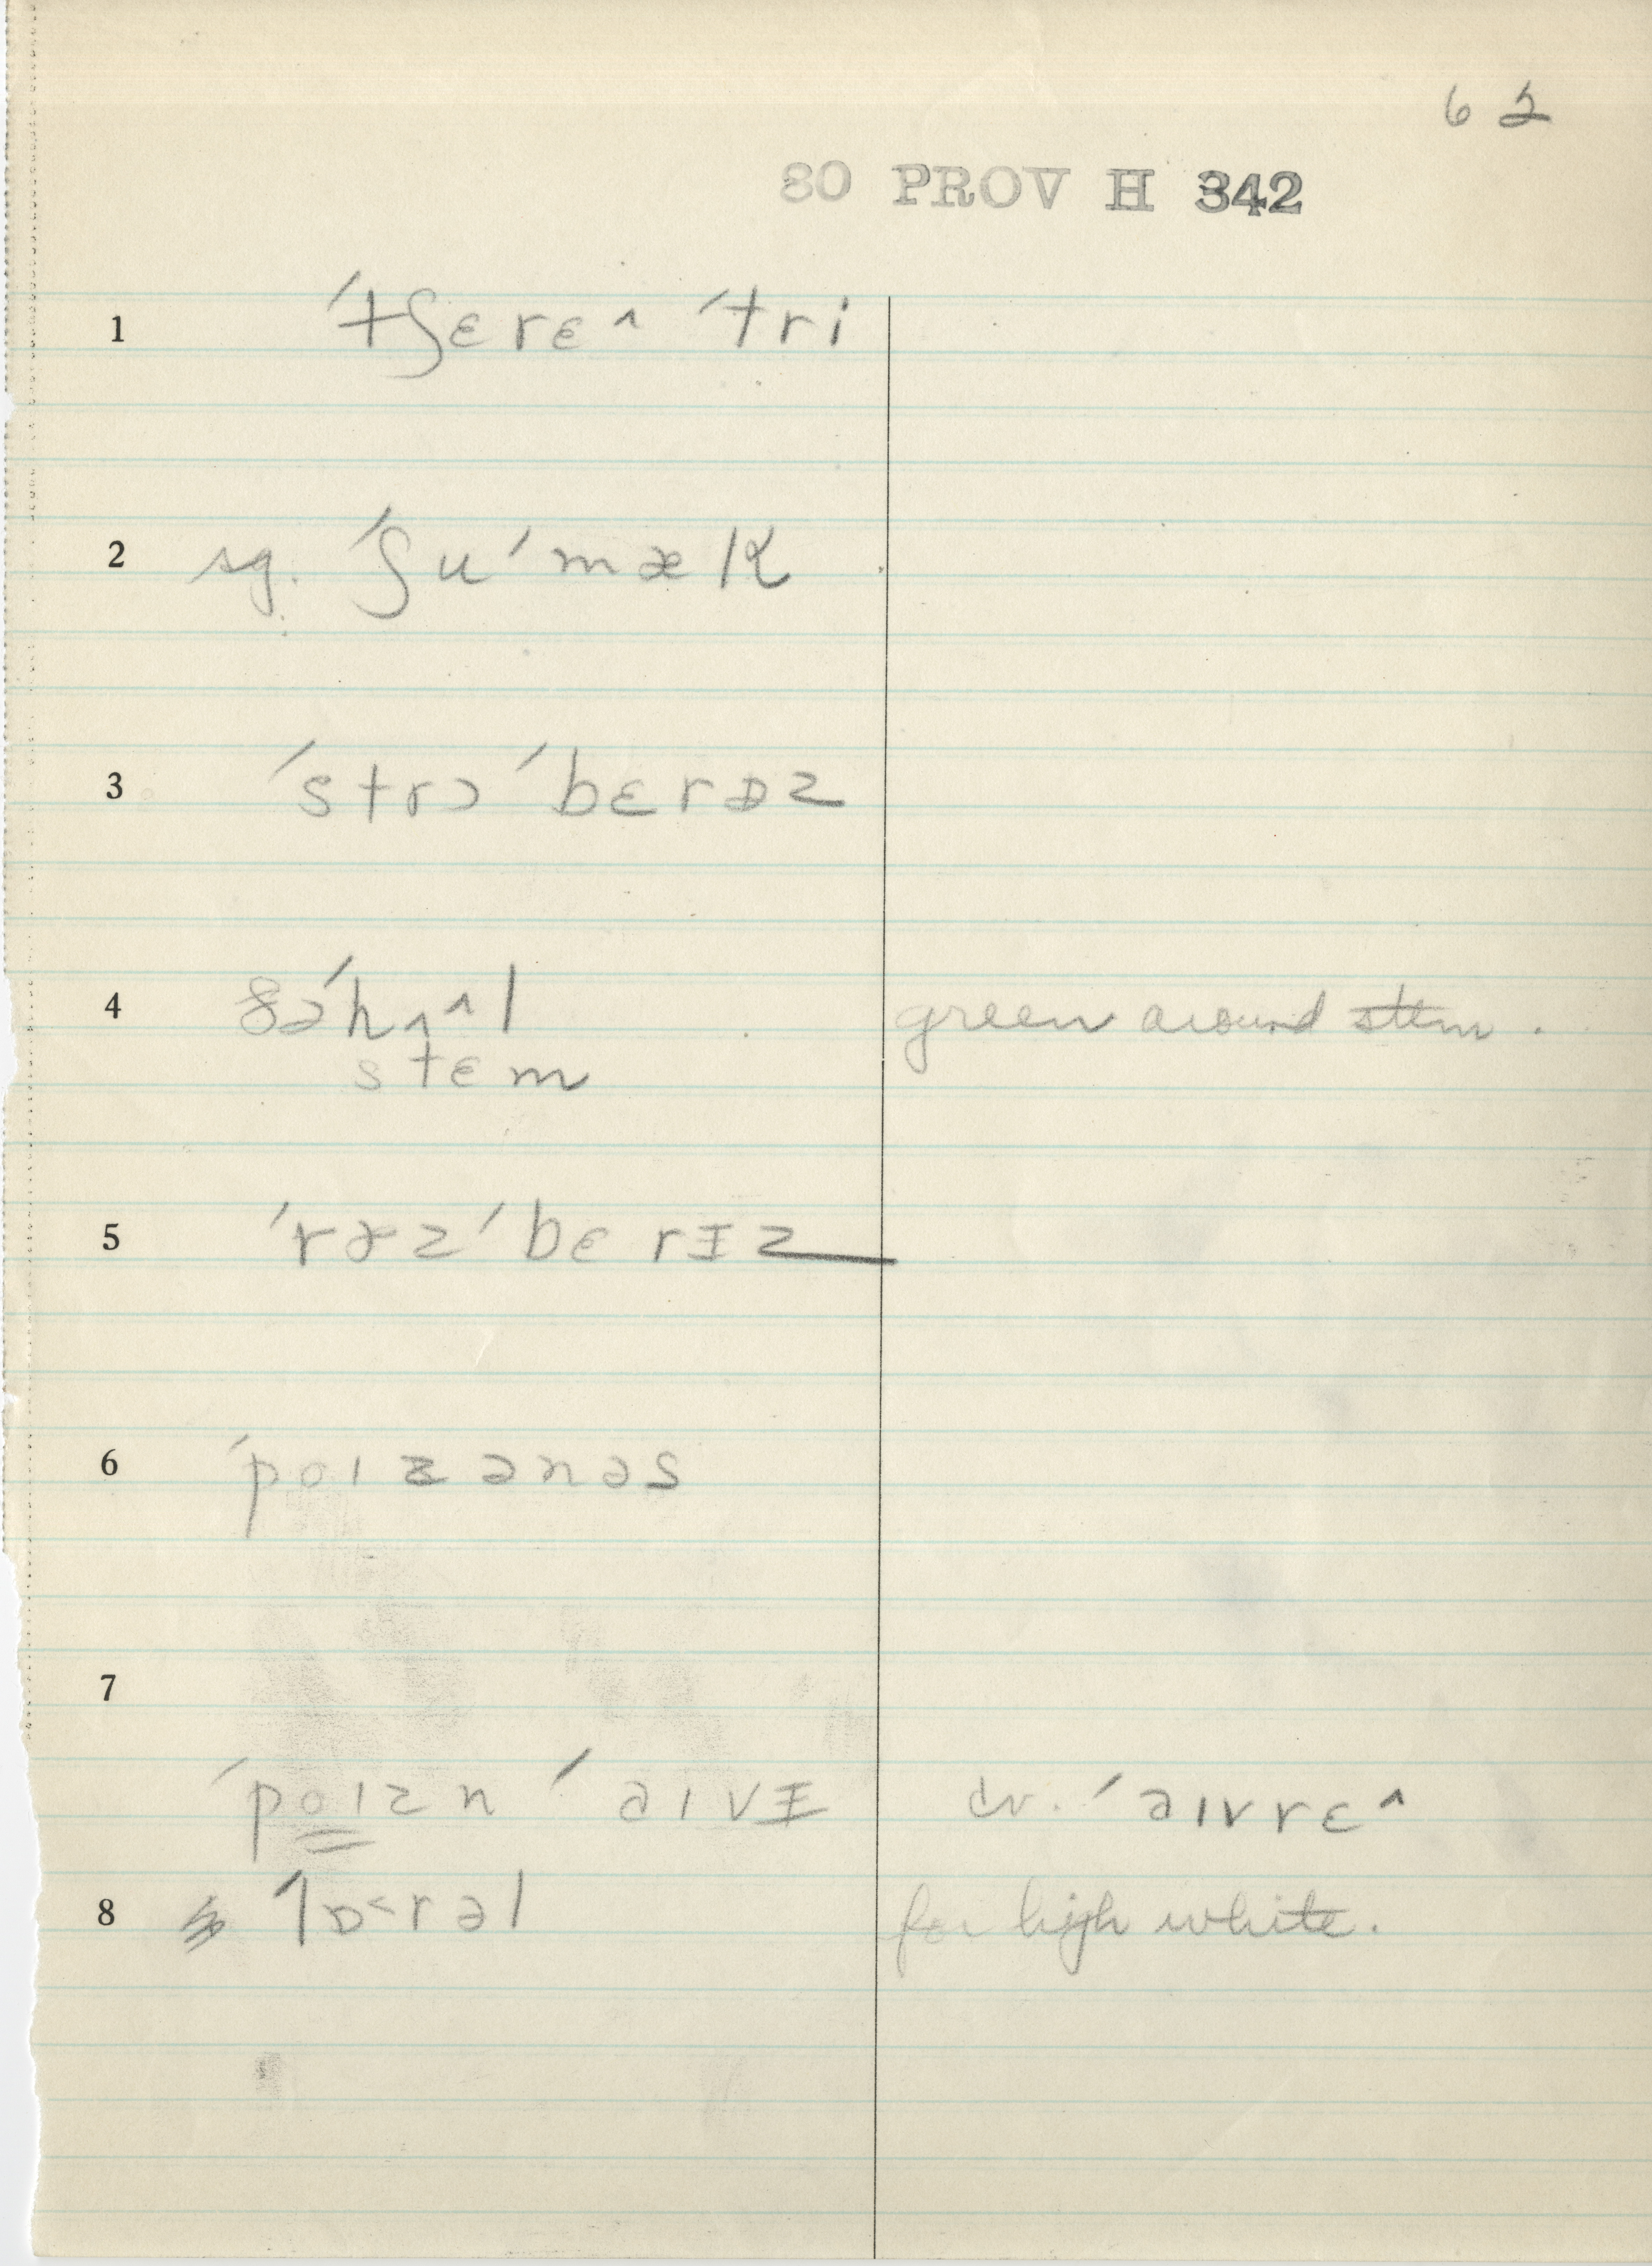 62
80 PROV H 342
1 ˈtʃɛrɛ^ ˈtri
2 sg. ˈʃuˈmæk
3 ˈstrɔˈbɛrɪz
4 ðəˈhʌ^l green around stem.
stɛm
5 ˈrazˈbɛrɪz
6 ˈpoɪzənəs
7
ˈpoɪzn ˈaɪvɪ cv. ˈəɪvrɛ^
8 ˈlɒ<rəl for high white.